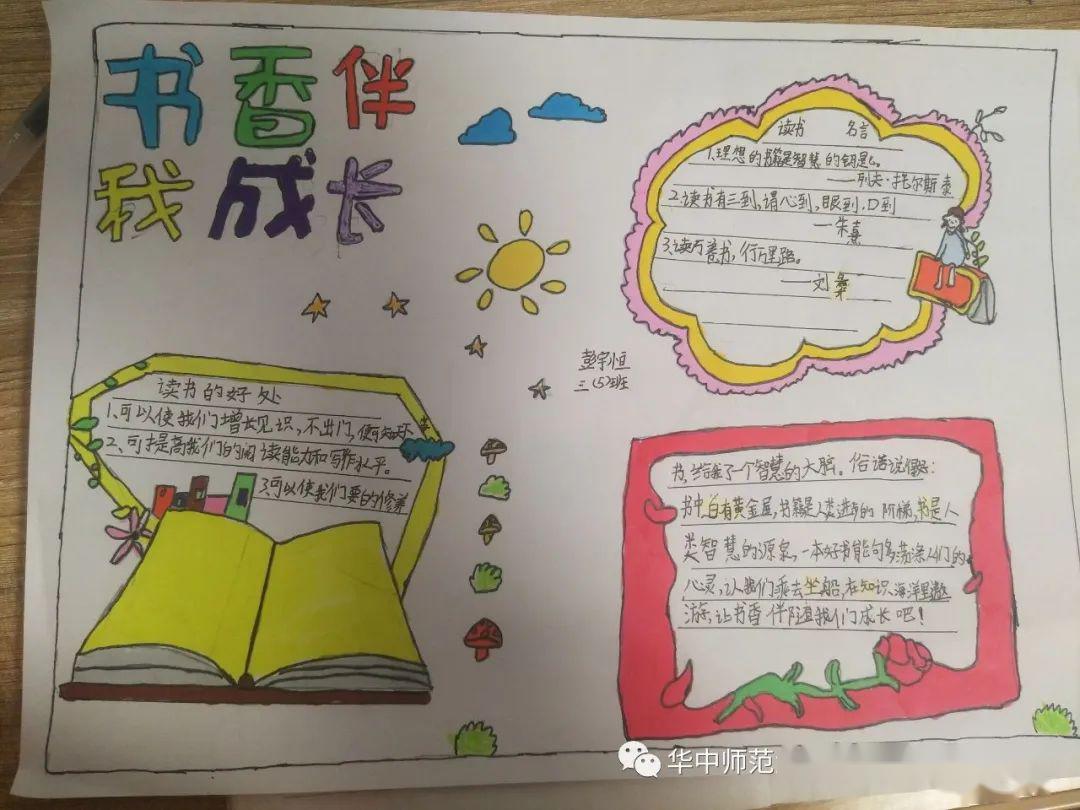 书香伴
我成长
读书 名言
1.理想的书籍是智慧的钥匙。
——列夫·托尔斯泰
2.读书有三到,谓心到,眼到,口到
—朱熹
3.读万卷书,行万里路。
——刘彝
彭宇恒
三(5)班
读书的好处
1、可以使我们增长见识,不出门,便可知
2、可提高我们的阅读能力和写作水平。
3.可以使我们要的修养
书,给我了个智慧的大脑。俗话说
书中自有黄金屋,书籍是人类进步的阶梯,书是人
类智慧的源泉,一本好书能句多荡涤人们的
心灵,让我们乘去坐船,在知识海洋里遨
游,让书香伴随我们成长吧!
华中师范